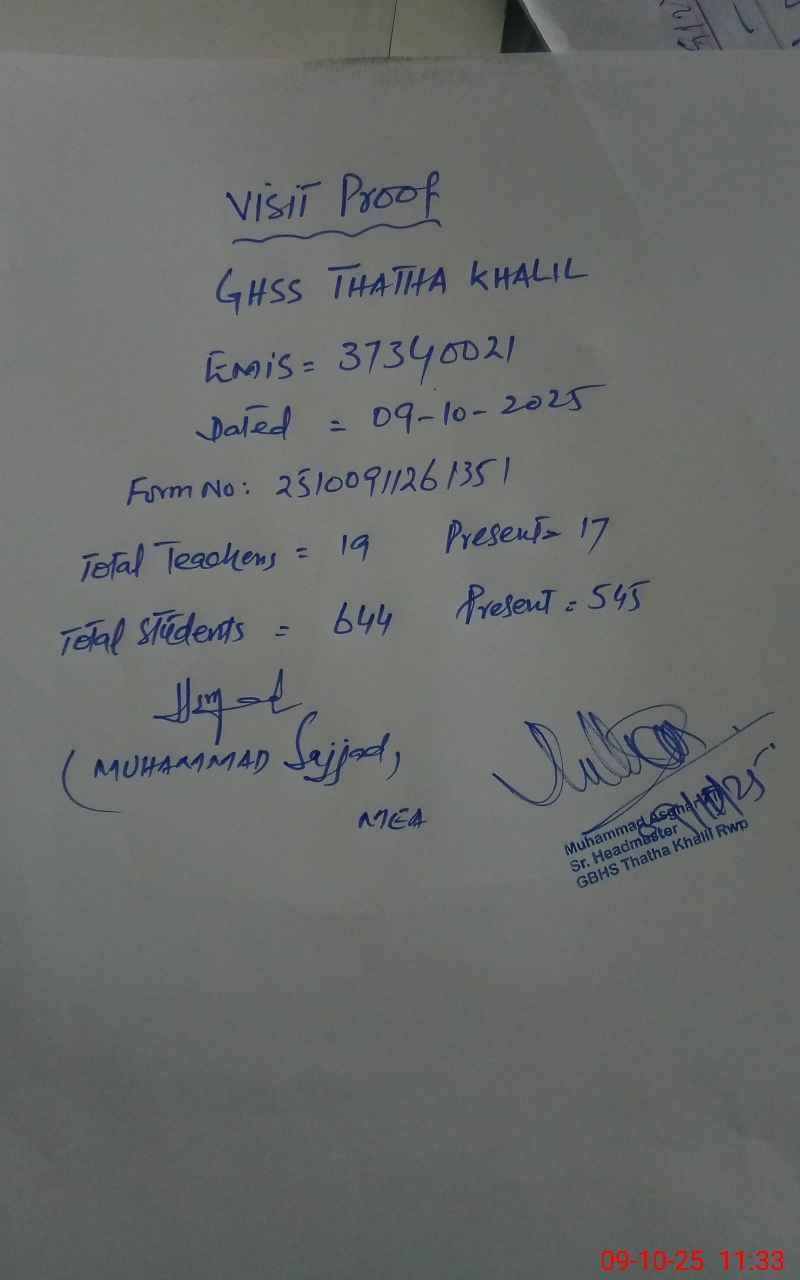 VISIT Proof
GHSS THATHA KHALIL
EMIS = 37340021
Dated = 09-10-2025
Form No: 25100911261351
Total Teachers = 19 Present = 17
Total Students = 644 Present = 545
(MUHAMMAD Sajjad,
MEA
Muhammad Asghar
Sr. Headmaster
GBHS Thatha Khalil Rwp
09-10-25 11:33